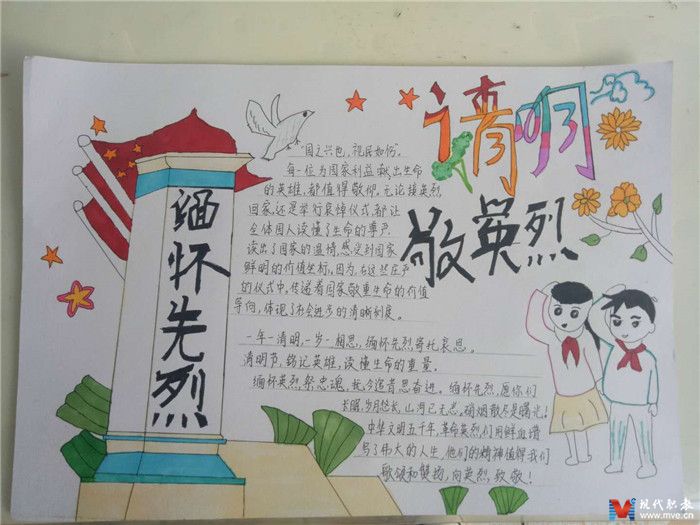 清明
敬英烈
缅怀先烈
"国之兴也,视民如伤"。
每一位为国家利益献出生命
的英雄,都值得敬仰,无论接英烈
回家,还是举行哀悼仪式,都让
全体国人读懂了生命的尊严
读出了国家的温情,感受到国家
鲜明的价值坐标,因为,在这些庄严
的仪式中,传递着国家敬重生命的价值
导向,体现了社会进步的清晰刻度。
一年一清明,一岁一相思,缅怀先烈寄托哀思。
清明节,铭记英雄,读懂生命的重量。
缅怀英烈,祭忠魂,抚今追昔思奋进。缅怀先烈,愿你们
长眠,岁月悠长,山河已无恙,硝烟散尽是曙光!
中华文明五千年,革命英烈们用鲜血谱
写了伟大的人生,他们的精神值得我们
歌颂和赞扬,向英烈致敬!
现代职教
www.mve.cn